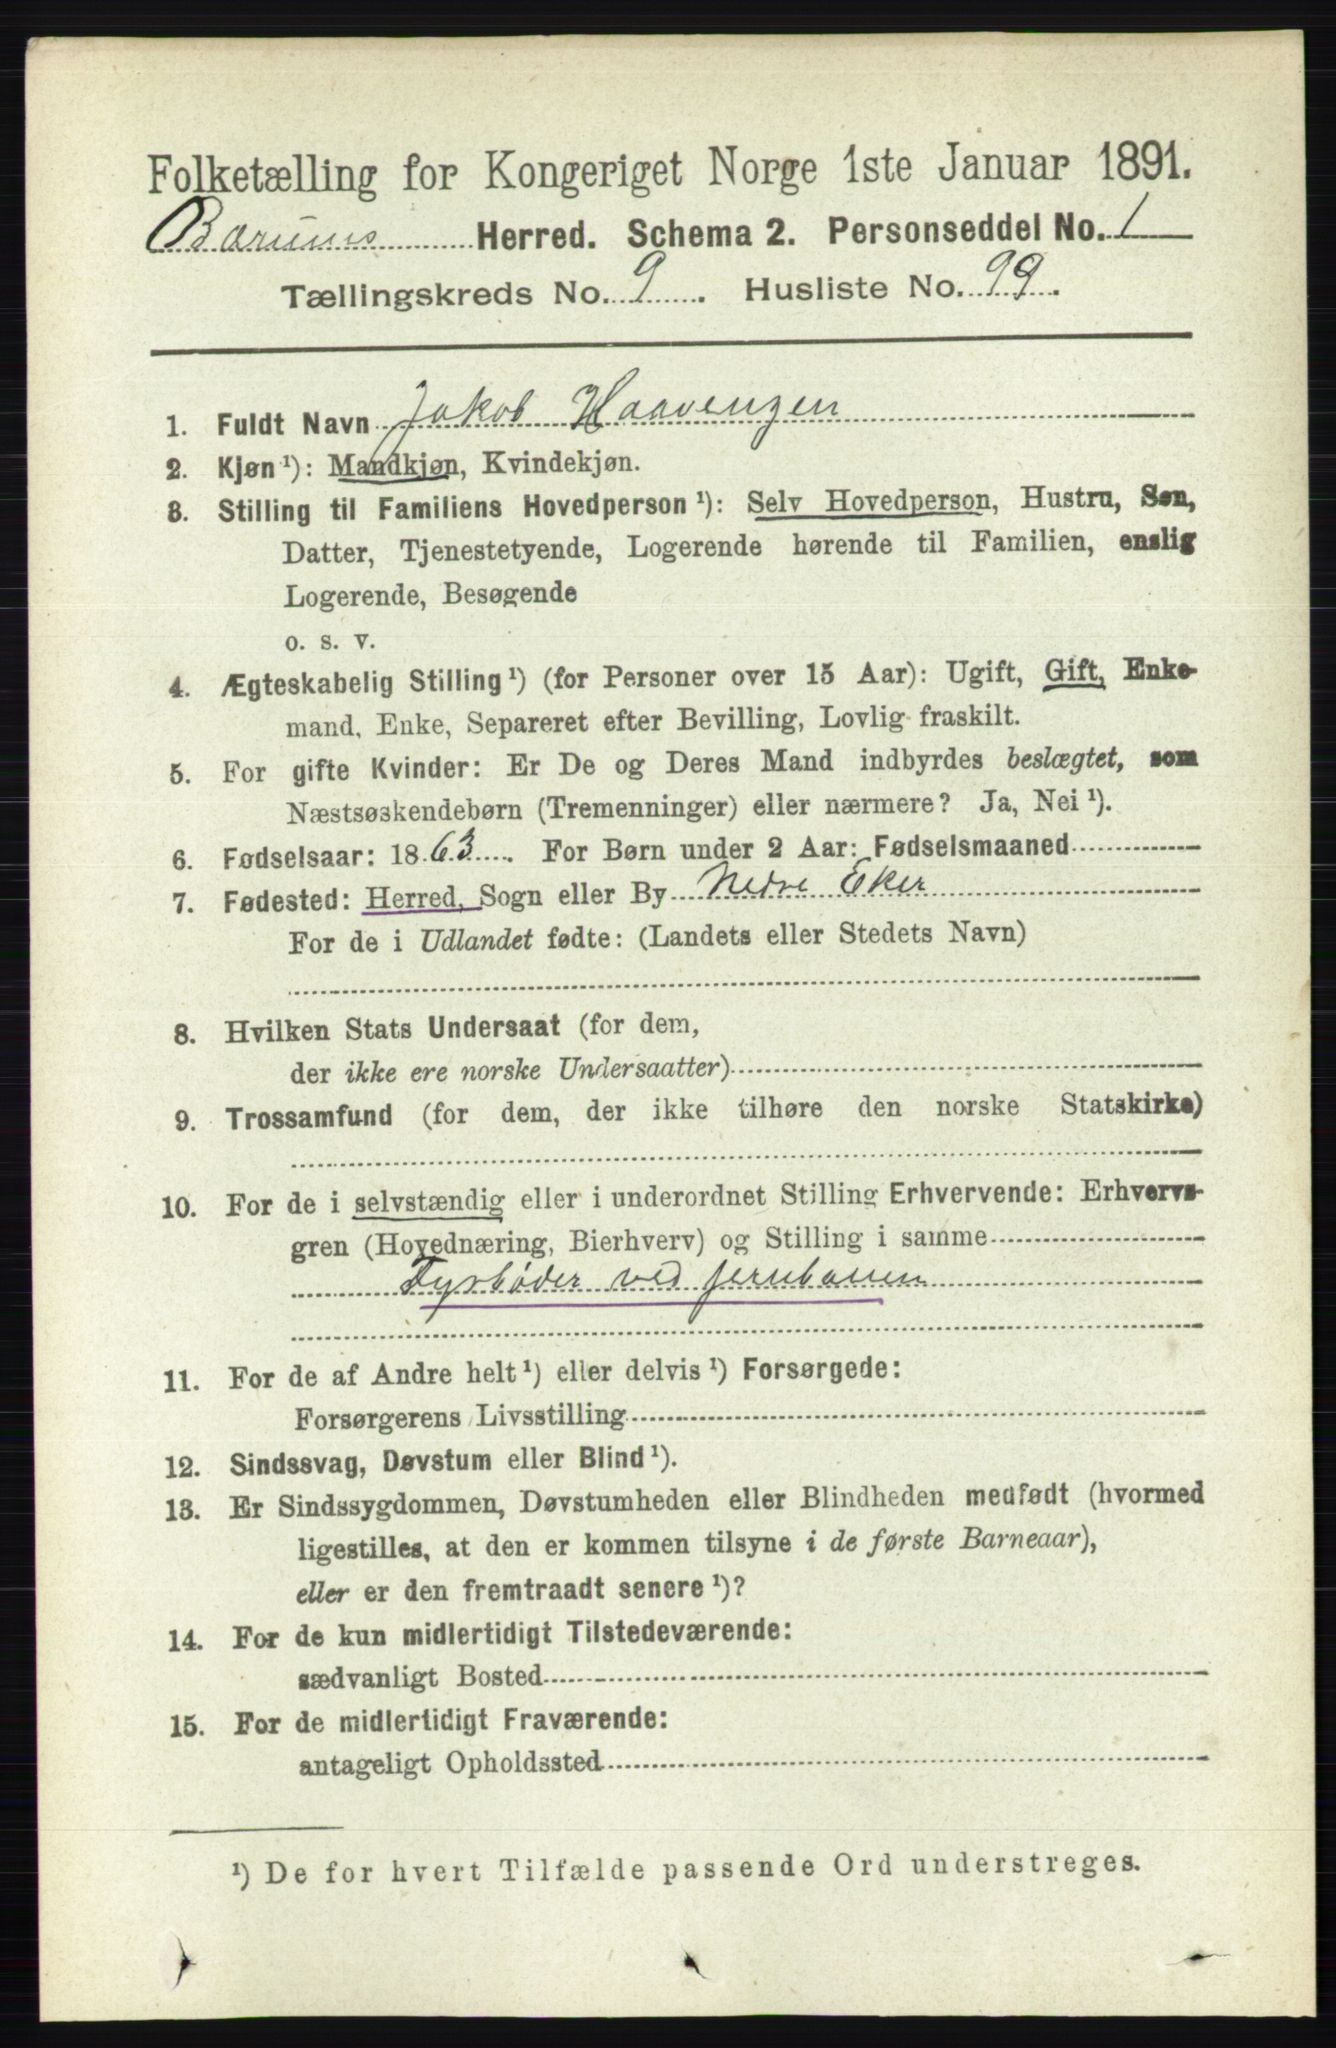 Folketælling for Kongeriget Norge 1ste Januar 1891.
Bærums Herred. Schema 2. Personseddel No. 1
Tællingskreds No. 9. Husliste No. 99.
1. Fuldt Navn Jakob Haavenzen
2. Kjøn ¹): Mandkjøn, Kvindekjøn.
3. Stilling til Familiens Hovedperson ¹): Selv Hovedperson, Hustru, Søn,
Datter, Tjenestetyende, Logerende hørende til Familien, enslig
Logerende, Besøgende
o. s. v.
4. Ægteskabelig Stilling ¹) (for Personer over 15 Aar): Ugift, Gift, Enke-
mand, Enke, Separeret efter Bevilling, Lovlig fraskilt.
5. For gifte Kvinder: Er De og Deres Mand indbyrdes beslægtet, som
Næstsøskendebørn (Tremenninger) eller nærmere? Ja, Nei ¹).
6. Fødselsaar: 1863. For Børn under 2 Aar: Fødselsmaaned
7. Fødested: Herred, Sogn eller By Nedre Eker
For de i Udlandet fødte: (Landets eller Stedets Navn)
8. Hvilken Stats Undersaat (for dem,
der ikke ere norske Undersaatter)
9. Trossamfund (for dem, der ikke tilhøre den norske Statskirke)
10. For de i selvstændig eller i underordnet Stilling Erhvervende: Erhvervs-
gren (Hovednæring, Bierhverv) og Stilling i samme
Fyrbøder ved jernbanen
11. For de af Andre helt ¹) eller delvis ¹) Forsørgede:
Forsørgerens Livsstilling
12. Sindssvag, Døvstum eller Blind ¹).
13. Er Sindssygdommen, Døvstumheden eller Blindheden medfødt (hvormed
ligestilles, at den er kommen tilsyne i de første Barneaar),
eller er den fremtraadt senere ¹)?
14. For de kun midlertidigt Tilstedeværende:
sædvanligt Bosted
15. For de midlertidigt Fraværende:
antageligt Opholdssted
¹) De for hvert Tilfælde passende Ord understreges.